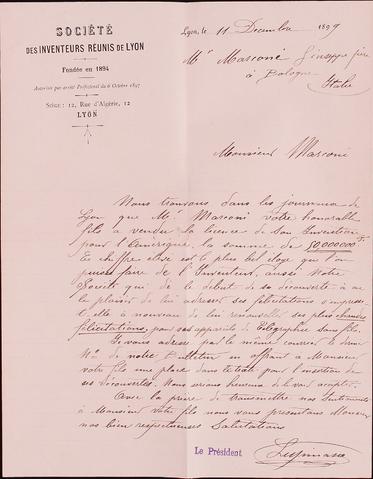 SOCIÉTÉ
DES INVENTEURS RÉUNIS DE LYON
Fondée en 1894
Autorisée par arrêté Préfectoral du 6 Octobre 1897
SIÈGE : 12, Rue d'Algérie, 12
LYON
Lyon, le 11 Décembre 1899
Mr Marconi Giuseppe père
à Bologne
Italie
Monsieur Marconi
Nous trouvons dans les journaux de
Lyon que Mr Marconi votre honorable
fils a vendu la licence de son Invention
pour l'Amérique, la somme de 50,000000 F.
Ce chiffre élevé est le plus bel éloge que l'on
puisse faire de l'Inventeur, aussi Notre
Société qui dès le début de sa découverte à eu
le plaisir de lui adresser ses félicitations
elle à nouveau de lui renouveler ses plus chaudes
félicitations, pour ses appareils de Télégraphie sans fil.
Je vous adresse par le même courrier le
No de notre Bulletin en offrant à Monsieur
votre fils une place dans pour l'insertion de
ses découvertes. Nous serions heureux de le voir accepter.
Avec la prière de transmettre nos
à Monsieur votre fils nous vous présentons Monsieur
nos bien respectueuses Salutations
Le Président